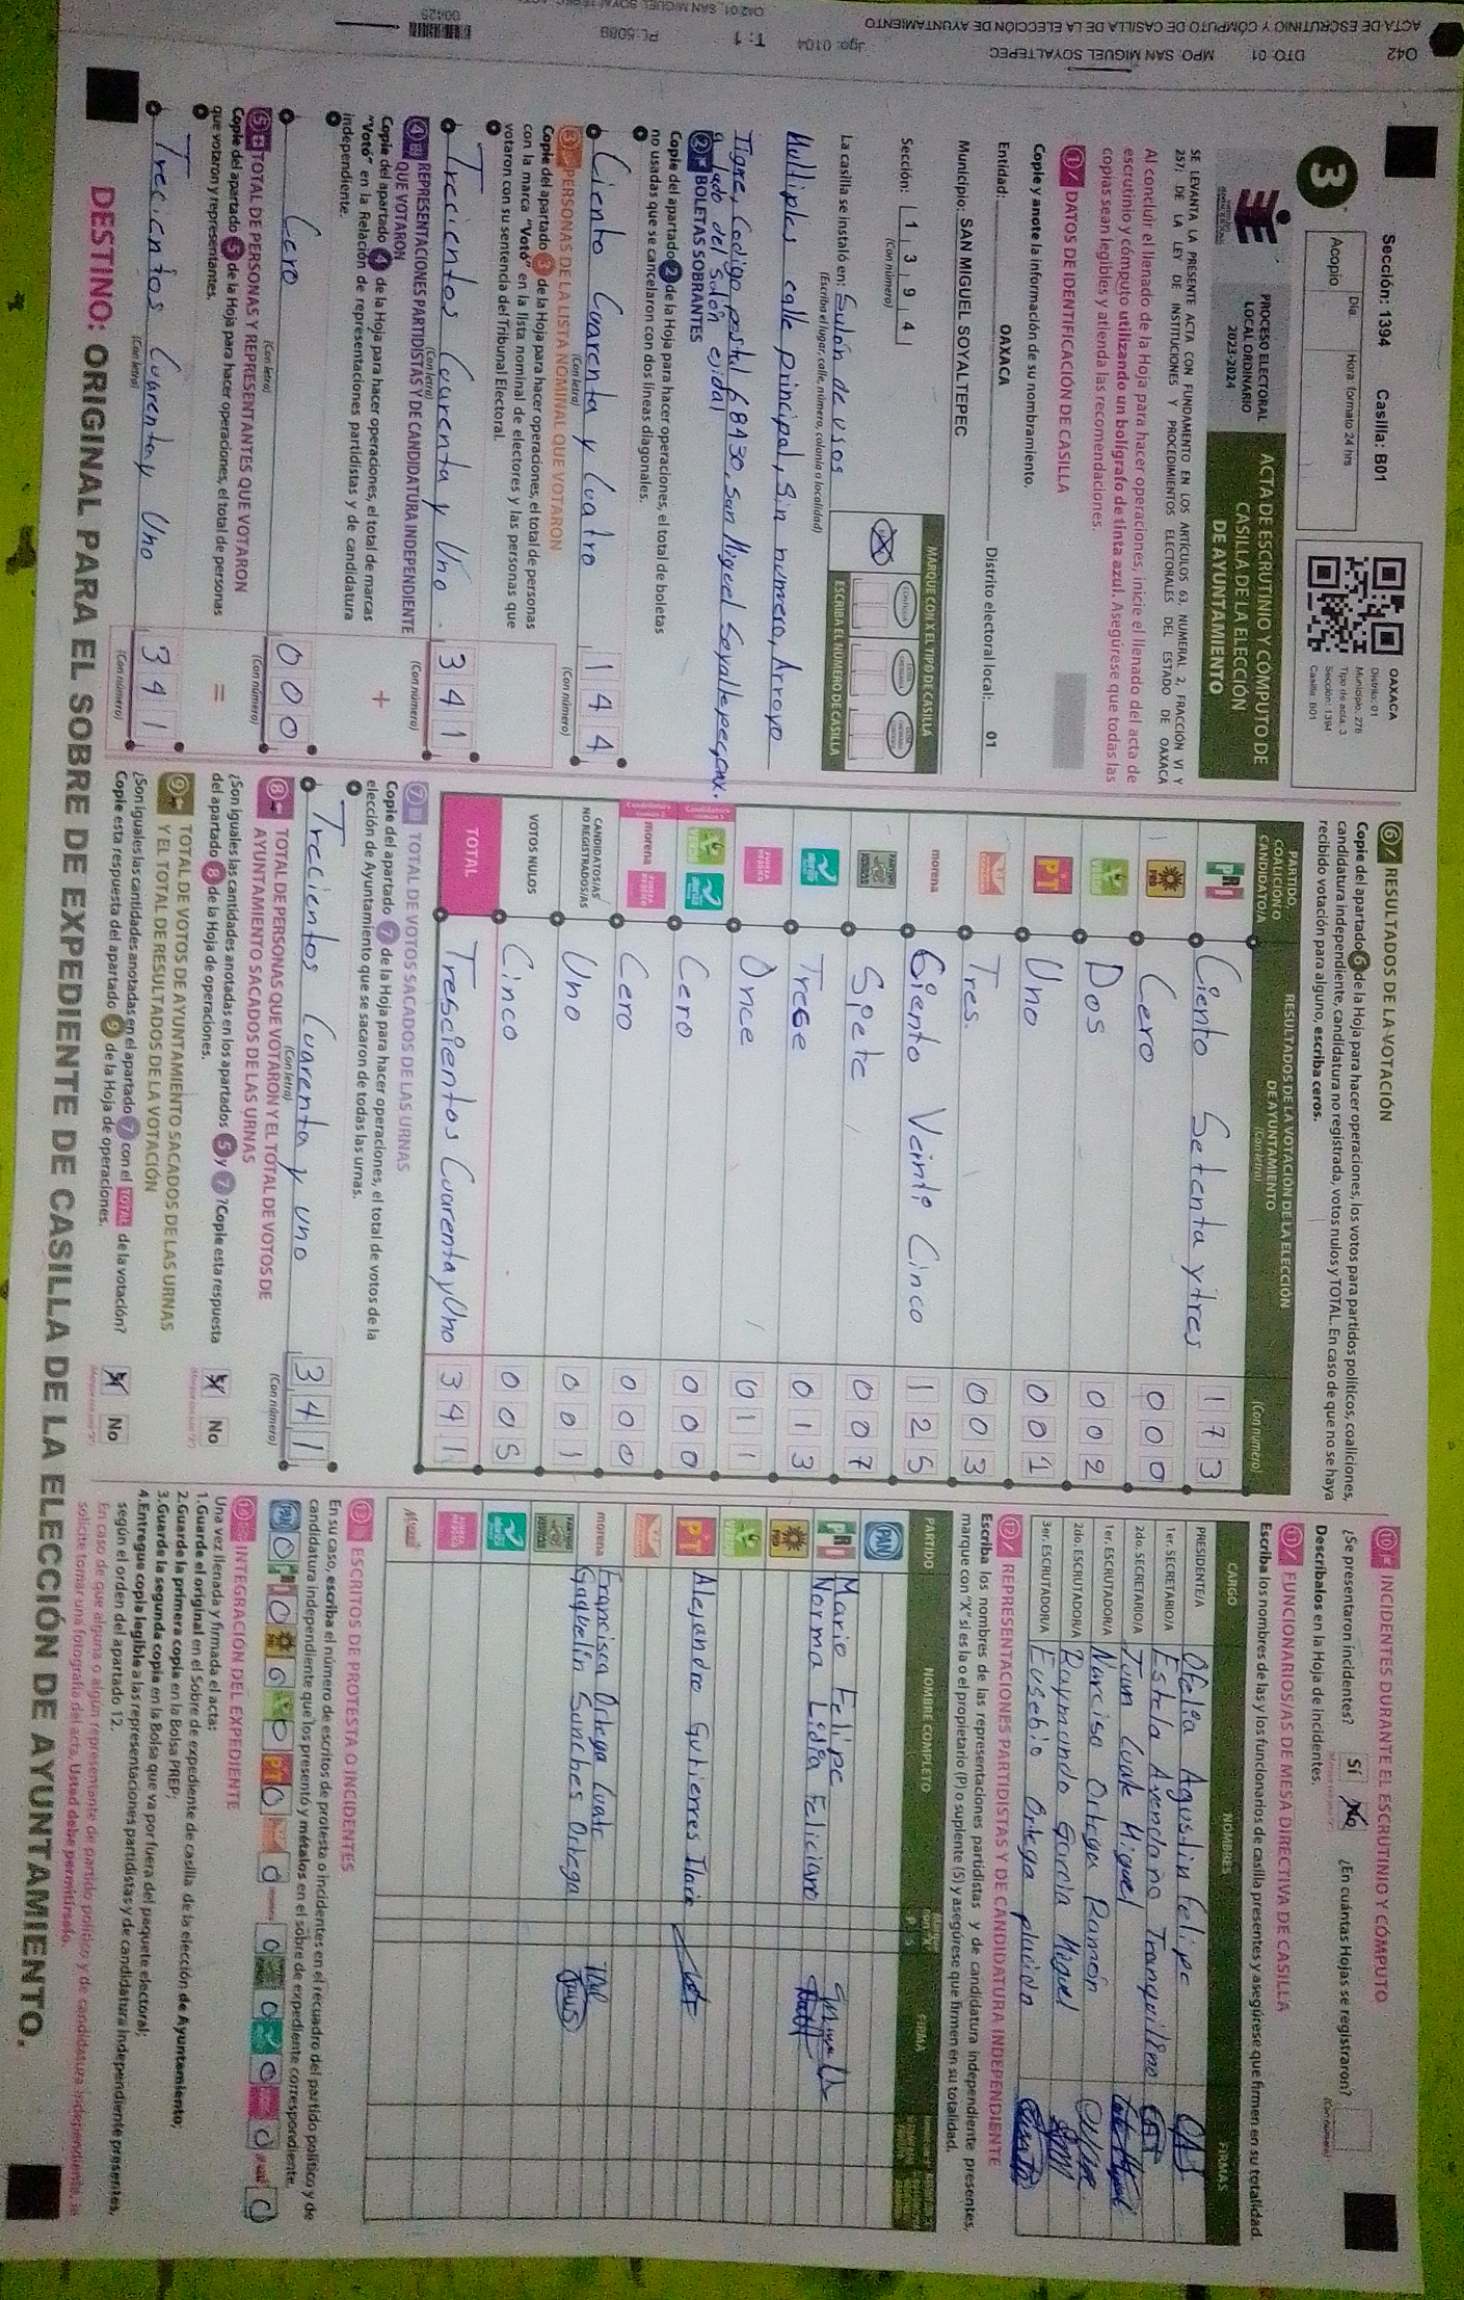 Sección: 1394 Casilla: B01
3
Acopio Día Hora: formato 24 hrs
OAXACA
Distrito: 01
Municipio: 278
Tipo de acta: 3
Sección: 1394
Casilla: B01
PROCESO ELECTORAL
LOCAL ORDINARIO
2023-2024
ACTA DE ESCRUTINIO Y CÓMPUTO DE
CASILLA DE LA ELECCIÓN
DE AYUNTAMIENTO
SE LEVANTA LA PRESENTE ACTA CON FUNDAMENTO EN LOS ARTÍCULOS 63, NUMERAL 2, FRACCIÓN VI Y
257; DE LA LEY DE INSTITUCIONES Y PROCEDIMIENTOS ELECTORALES DEL ESTADO DE OAXACA
Al concluir el llenado de la Hoja para hacer operaciones, inicie el llenado del acta de
escrutinio y cómputo utilizando un bolígrafo de tinta azul. Asegúrese que todas las
copias sean legibles y atienda las recomendaciones.
1 DATOS DE IDENTIFICACIÓN DE CASILLA
Copie y anote la información de su nombramiento.
Entidad: OAXACA Distrito electoral local: 01
Municipio: SAN MIGUEL SOYALTEPEC
Sección: 1 3 9 4
(Con número)
MARQUE CON X EL TIPO DE CASILLA
ESCRIBA EL NÚMERO DE CASILLA
La casilla se instaló en: Salón de usos
(Escriba el lugar, calle, número, colonia o localidad)
Multiples calle principal, sin numero, Arroyo
Tigre, Codigo postal 68430, San Miguel Soyaltepec, oax.
a lado del salón ejidal
2 BOLETAS SOBRANTES
Copie del apartado 2 de la Hoja para hacer operaciones, el total de boletas
no usadas que se cancelaron con dos líneas diagonales.
Ciento Cuarenta y Cuatro 1 4 4
(Con letra) (Con número)
3 PERSONAS DE LA LISTA NOMINAL QUE VOTARON
Copie del apartado 3 de la Hoja para hacer operaciones, el total de personas
con la marca “Votó” en la lista nominal de electores y las personas que
votaron con su sentencia del Tribunal Electoral.
Trecientos Cuarenta y Uno. 3 4 1
(Con letra) (Con número)
4 REPRESENTACIONES PARTIDISTAS Y DE CANDIDATURA INDEPENDIENTE
QUE VOTARON
Copie del apartado 4 de la Hoja para hacer operaciones, el total de marcas
“Votó” en la Relación de representaciones partidistas y de candidatura
independiente.
+
Cero 0 0 0
(Con letra) (Con número)
5 TOTAL DE PERSONAS Y REPRESENTANTES QUE VOTARON
Copie del apartado 5 de la Hoja para hacer operaciones, el total de personas
que votaron y representantes.
=
Trecientos Cuarenta y Uno 3 4 1
(Con letra) (Con número)
6 RESULTADOS DE LA VOTACIÓN
Copie del apartado 6 de la Hoja para hacer operaciones, los votos para partidos políticos, coaliciones,
candidatura independiente, candidatura no registrada, votos nulos y TOTAL. En caso de que no se haya
recibido votación para alguno, escriba ceros.
PARTIDO,
COALICIÓN O
CANDIDATO/A
RESULTADOS DE LA VOTACIÓN DE LA ELECCIÓN
DE AYUNTAMIENTO
(Con letra) (Con número)
PRI Ciento Setenta y tres 1 7 3
PRD Cero 0 0 0
VERDE Dos 0 0 2
PT Uno 0 0 1
Tres. 0 0 3
morena Ciento Veinte Cinco 1 2 5
Siete 0 0 7
Trese 0 1 3
Once 0 1 1
VERDE Cero 0 0 0
morena Cero 0 0 0
CANDIDATOS/AS
NO REGISTRADOS/AS Uno 0 0 1
VOTOS NULOS Cinco 0 0 5
TOTAL Trescientos Cuarenta y Uno 3 4 1
7 TOTAL DE VOTOS SACADOS DE LAS URNAS
Copie del apartado 7 de la Hoja para hacer operaciones, el total de votos de la
elección de Ayuntamiento que se sacaron de todas las urnas.
Trecientos Cuarenta y uno 3 4 1
(Con letra) (Con número)
8 TOTAL DE PERSONAS QUE VOTARON Y EL TOTAL DE VOTOS DE
AYUNTAMIENTO SACADOS DE LAS URNAS
¿Son iguales las cantidades anotadas en los apartados 5 y 7? Copie esta respuesta
del apartado 8 de la Hoja de operaciones.
Sí No
9 TOTAL DE VOTOS DE AYUNTAMIENTO SACADOS DE LAS URNAS
Y EL TOTAL DE RESULTADOS DE LA VOTACIÓN
¿Son iguales las cantidades anotadas en el apartado 7 con el TOTAL de la votación?
Copie esta respuesta del apartado 9 de la Hoja de operaciones.
Sí No
10 INCIDENTES DURANTE EL ESCRUTINIO Y CÓMPUTO
¿Se presentaron incidentes? Sí No ¿En cuántas Hojas se registraron?
(Con número)
Descríbalos en la Hoja de incidentes.
11 FUNCIONARIOS/AS DE MESA DIRECTIVA DE CASILLA
Escriba los nombres de las y los funcionarios de casilla presentes y asegúrese que firmen en su totalidad.
CARGO NOMBRES FIRMAS
PRESIDENTE/A Ofelia Agustin Felipe
1er. SECRETARIO/A Estela Avendaño Tranquilino
2do. SECRETARIO/A Juan Cuate Miguel
1er. ESCRUTADOR/A Narciso Ortega Ramón
2do. ESCRUTADOR/A Raymundo Garcia Miguel
3er. ESCRUTADOR/A Eusebio Ortega placido
12 REPRESENTACIONES PARTIDISTAS Y DE CANDIDATURA INDEPENDIENTE
Escriba los nombres de las representaciones partidistas y de candidatura independiente presentes,
marque con “X” si es la o el propietario (P) o suplente (S) y asegúrese que firmen en su totalidad.
PARTIDO NOMBRE COMPLETO P S FIRMA
PAN
PRI Mario Felipe
Norma Lidia Feliciano
PRD
VERDE
PT Alejandro Gutierres Ilario
morena Francisca Ortega Cuate
Gaquelin Sanches Ortega
13 ESCRITOS DE PROTESTA O INCIDENTES
En su caso, escriba el número de escritos de protesta o incidentes en el recuadro del partido político y de
candidatura independiente que los presentó y métalos en el sobre de expediente correspondiente.
14 INTEGRACIÓN DEL EXPEDIENTE
Una vez llenada y firmada el acta:
1.Guarde el original en el Sobre de expediente de casilla de la elección de Ayuntamiento;
2.Guarde la primera copia en la Bolsa PREP;
3.Guarde la segunda copia en la Bolsa que va por fuera del paquete electoral;
4.Entregue copia legible a las representaciones partidistas y de candidatura independiente presentes,
según el orden del apartado 12.
En caso de que alguna o algún representante de partido político y de candidatura independiente, le
solicite tomar una fotografía del acta, Usted debe permitírselo.
DESTINO: ORIGINAL PARA EL SOBRE DE EXPEDIENTE DE CASILLA DE LA ELECCIÓN DE AYUNTAMIENTO.
042 DTO. 01 MPO. SAN MIGUEL SOYALTEPEC
ACTA DE ESCRUTINIO Y CÓMPUTO DE CASILLA DE LA ELECCIÓN DE AYUNTAMIENTO
Jgo: 0104 T: 1
00425